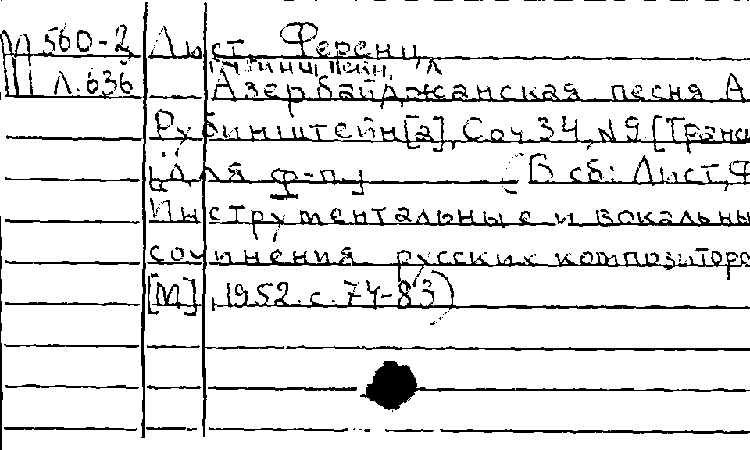 М 560-2 Лист, Ференц
Л. 636 Азербайджанская песня А
Рубинштейн[а], Соч. 34, N 9 [Транс
для ф-п.] (В сб: Лист, Ф
Инструментальные и вокальны
сочинения русских композиторо
[М], 1952. с. 74-83)